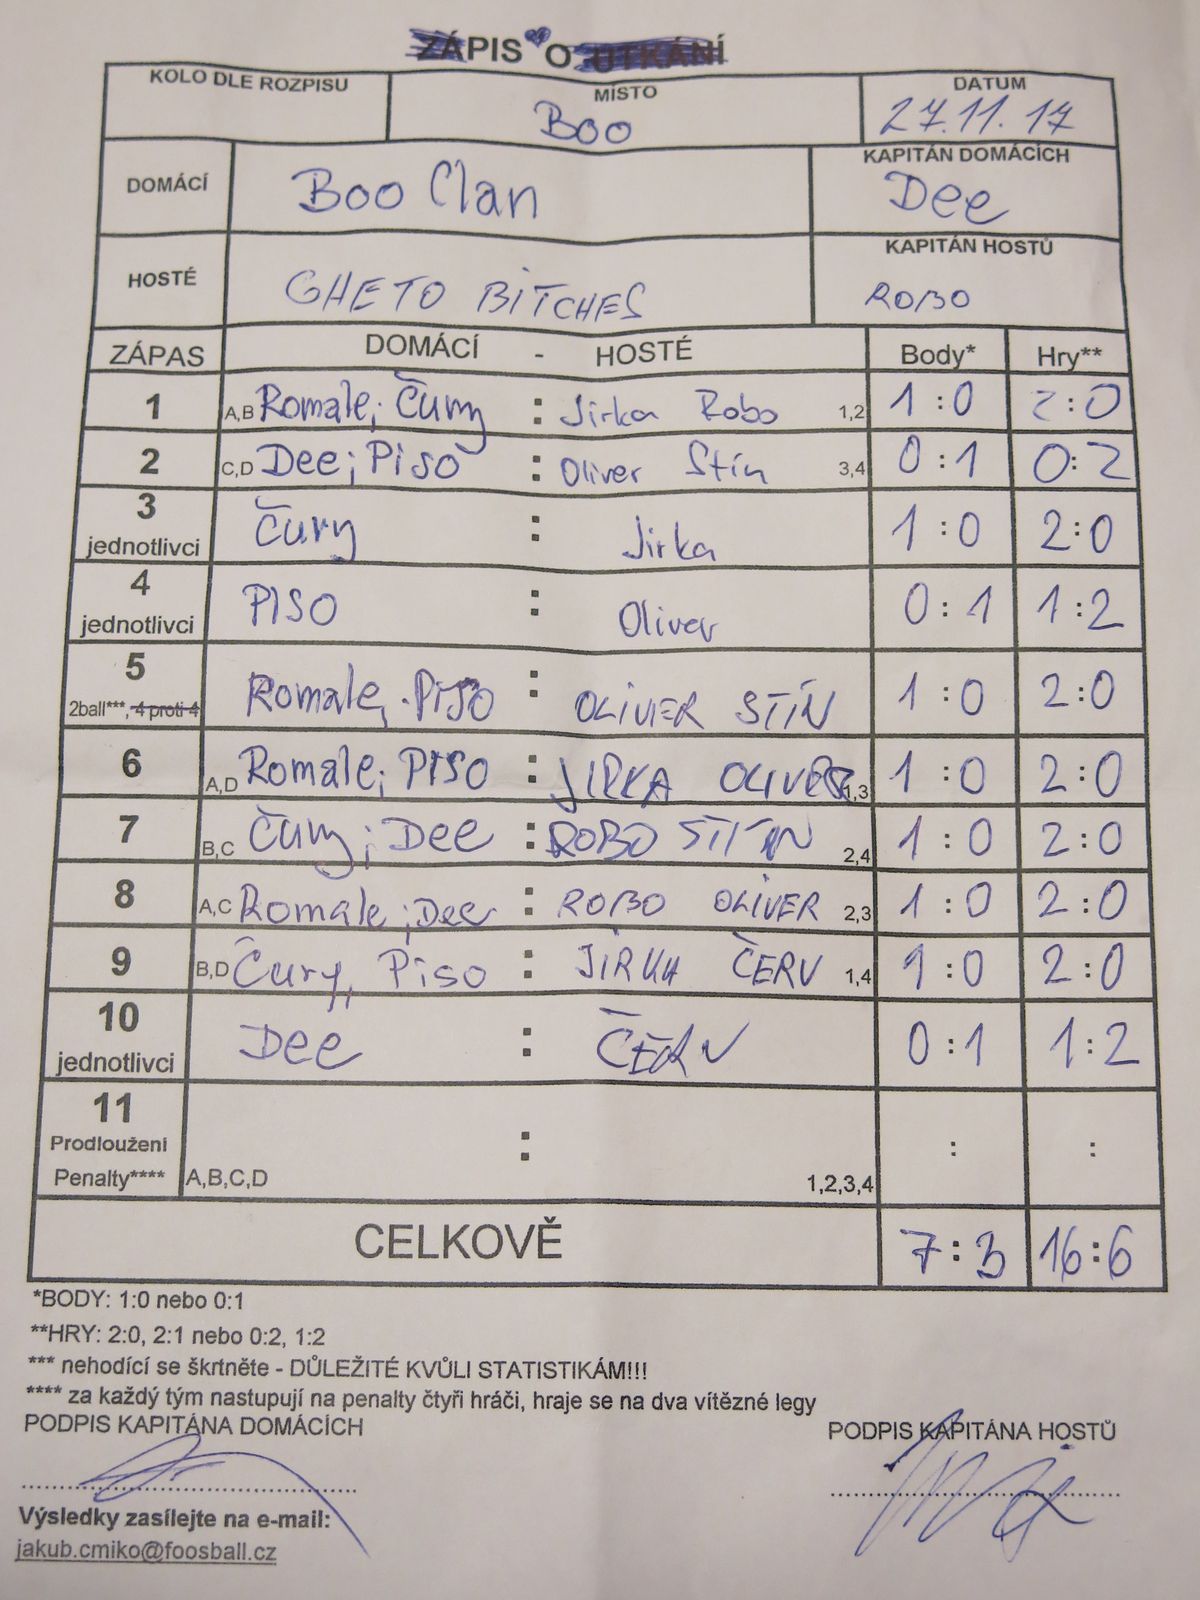 ZÁPIS O UTKÁNÍ
KOLO DLE ROZPISU
MÍSTO
Boo
DATUM
27.11.17
DOMÁCÍ
Boo Clan
KAPITÁN DOMÁCÍCH
Dee
HOSTÉ
GHETO BITCHES
KAPITÁN HOSTŮ
ROBO
ZÁPAS DOMÁCÍ - HOSTÉ Body* Hry**
1 A,B Romale; Čury : Jirka Robo 1,2 1:0 2:0
2 C,D Dee; Piso : Oliver Stín 3,4 0:1 0:2
3 Čury : Jirka 1:0 2:0
jednotlivci
4 PISO : Oliver 0:1 1:2
jednotlivci
5 Romale, PISO : OLIVER STÍN 1:0 2:0
2ball***, 4 proti 4
6 A,D Romale; PISO : JIRKA OLIVER 1,3 1:0 2:0
7 B,C Čury; Dee : ROBO STÍN 2,4 1:0 2:0
8 A,C Romale; Dee : ROBO OLIVER 2,3 1:0 2:0
9 B,D Čury, Piso : JIRKA ČERV 1,4 1:0 2:0
10 Dee : ČERV 0:1 1:2
jednotlivci
11 : : :
Prodloužení
Penalty**** A,B,C,D 1,2,3,4
CELKOVĚ 7:3 16:6
*BODY: 1:0 nebo 0:1
**HRY: 2:0, 2:1 nebo 0:2, 1:2
*** nehodící se škrtněte - DŮLEŽITÉ KVŮLI STATISTIKÁM!!!
**** za každý tým nastupují na penalty čtyři hráči, hraje se na dva vítězné legy
PODPIS KAPITÁNA DOMÁCÍCH
PODPIS KAPITÁNA HOSTŮ
Výsledky zasílejte na e-mail:
jakub.cmiko@foosball.cz